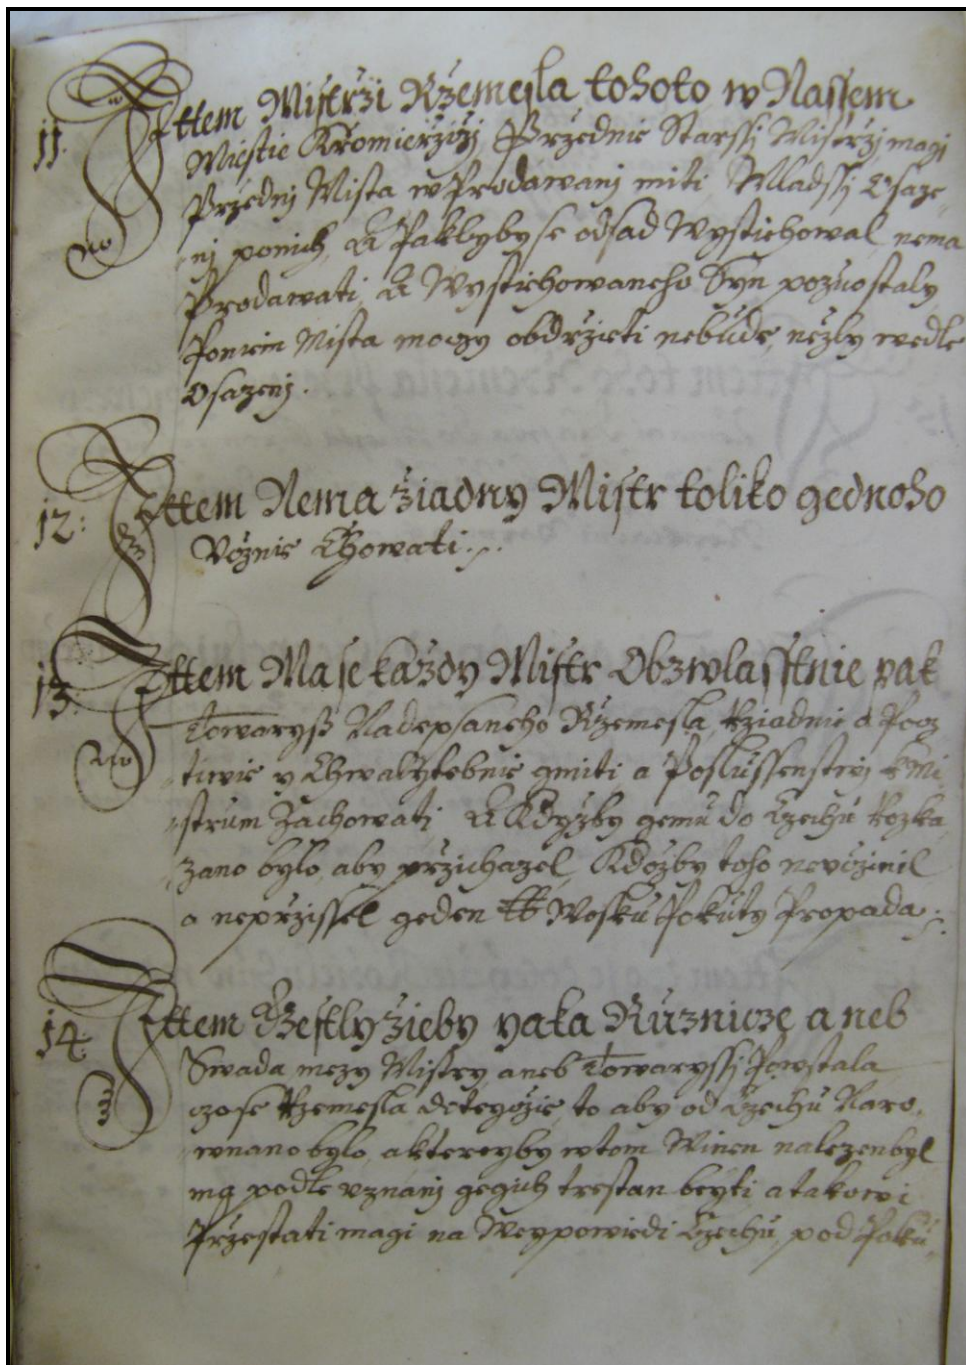 11. Ittem Mistrzi Rzemesla tohoto w Nassem
Miestie Kromierziži, Przednie Starssj Mistrzj magj
Przednj Mista w Prodawanj miti Mladssj Osaze-
nj ponich, A Paklbyby se odsad Wystiehowal, nema
Prodawati, A Wystiehowaneho Syn pozuostaly
Poniem Mista moczy obdrzieti nebude, nežly wedle
Osazenj.
12: Ittem Nema žiadny Mistr toliko gednoho
Vcžnie Chowati.
13. Ittem Ma se každy Mistr Obzwlasstnie yak
Towaryß Nadepsaneho Rzemesla, Rziadnie a Pocz
tiwie y Chwalytebnie gmiti a Poslussenstwj k Mi
strum Zachowati, A Kdyžby gemu do Czechu Rozka
zano bylo, aby przichazel, Kdožby toho nevčžinil
a neprzissel geden ℔ Wosku Pokuty Propada.
14. Ittem Gestlyžieby yaka Ružnicze aneb
Swada mezy Mistry aneb Towaryssj Powstala
czo se Rzemesla dotegčžie, to aby od Czechu Naro-
wnano bylo, a ktereyby w tom Winen nalezen byl
ma podle vznanj gegich trestan beyti, a takowi
Przestati magi na Weypowiedi Czechu, pod Poku-